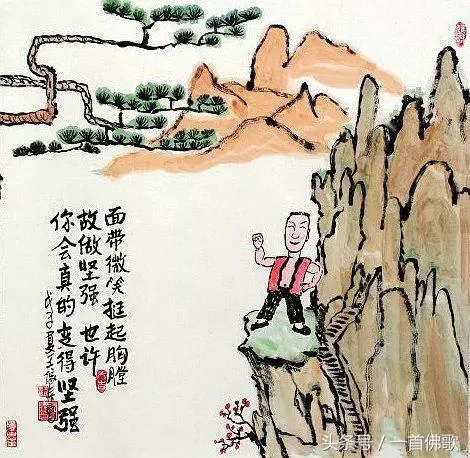 面带微笑挺起胸膛
故做坚强 也许
你会真的变得坚强
头条号／一首佛歌